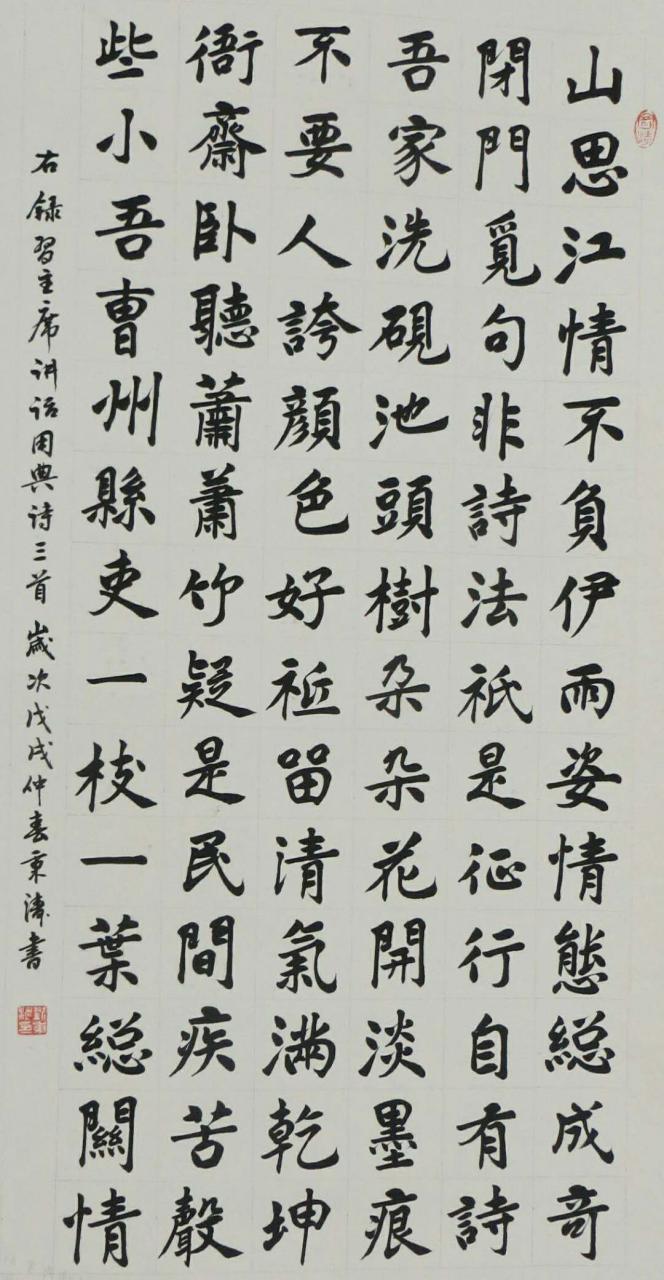 山思江情不負伊雨姿情態緫成奇
閉門覓句非詩法祇是征行自有詩
吾家洗硯池頭樹朵朵花開淡墨痕
不要人誇顔色好祇留清氣滿乾坤
衙齋卧聽蕭蕭竹疑是民間疾苦聲
些小吾曹州縣吏一枝一葉緫關情
右録習主席讲话用典诗三首 歲次戊戌仲春秉涛書